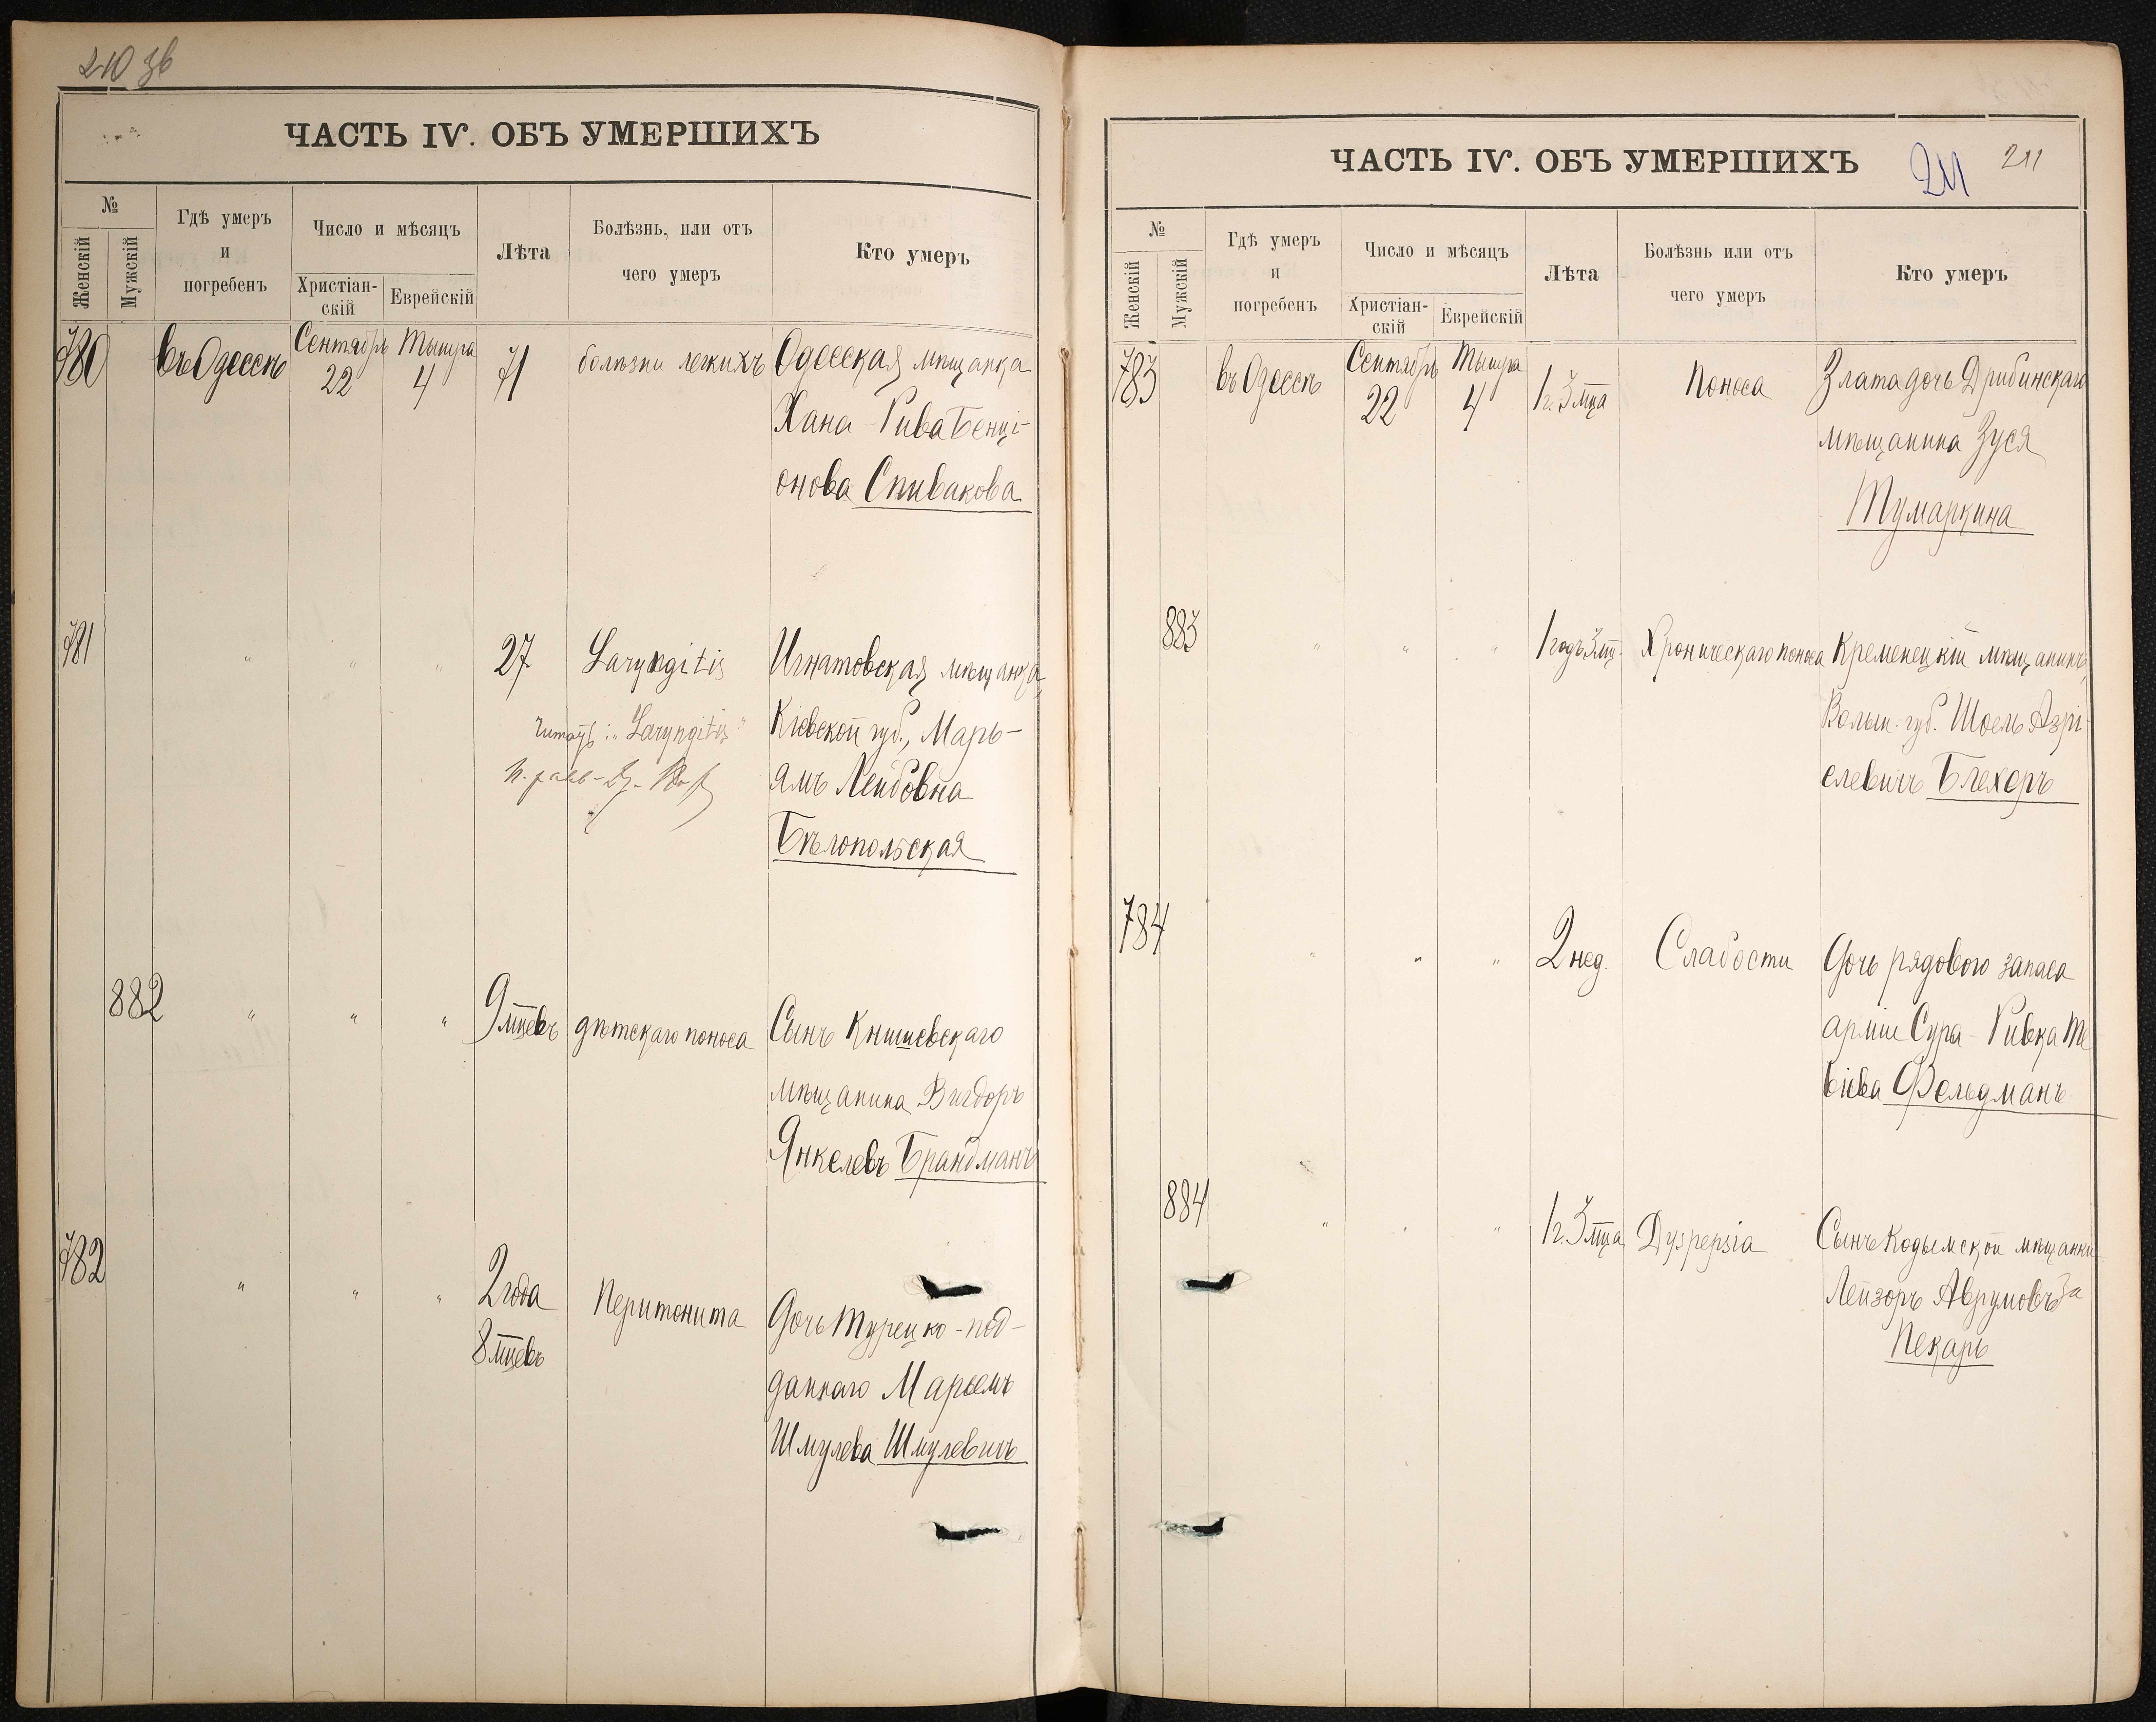 210 зв
ЧАСТЬ IV. ОБЪ УМЕРШИХЪ
№
Женскій
Мужскій
Гдѣ умеръ
и
погребенъ
Число и мѣсяцъ
Христіан-
скій
Еврейскій
Лѣта
Болѣзнь, или отъ
чего умеръ
Кто умеръ
780 въ Одессѣ Сентябрь 22 Тышра 4 71 болѣзни легкихъ Одесская мѣщанка
Хана-Рива Бенці-
онова Спивакова
781 " " " 27 Laryngitis Игнатовская мѣщанка,
Кіевской губ., Марь-
ямъ Лейбовна
Бѣлопольская
читать: "Laryngitis"
882 " " " 9 мцевъ дѣтскаго поноса Сынъ Книшевскаго
мѣщанина Вигдоръ
Янкелевъ Брандманъ
782 " " " 2 года Перитонита Дочь Турецко-под-
8 мцевъ
даннаго Марьемъ
Шмулева Шмулевичъ
ЧАСТЬ IV. ОБЪ УМЕРШИХЪ
211 211
№
Женскій
Мужскій
Гдѣ умеръ
и
погребенъ
Число и мѣсяцъ
Христіан-
скій
Еврейскій
Лѣта
Болѣзнь или отъ
чего умеръ
Кто умеръ
783 въ Одессѣ Сентябрь 22 Тышра 4 1 г. 3 мца Поноса Злата дочь Дрибинскаго
мѣщанина Зуся
Тумаркина
883 " " " 1 годъ 3 мц. Хроническаго поноса Кременецкій мѣщанинъ,
Волын. губ. Шоель Азрі-
елевичъ Блехеръ
784 " " " 2 нед. Слабости Дочь рядового запаса
арміи Сура-Ривка Те-
віева Фельдманъ
884 " " " 1 г. 3 мца Dyspepsia Сынъ Кодымской мѣщанки
Лейзоръ Аврумовъ
Пекарь